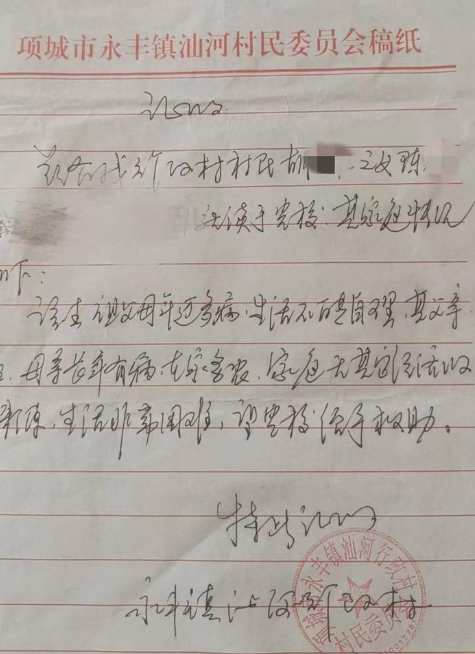 项城市永丰镇汕河村民委员会稿纸
证明
行政村村民胡 之女
就读于贵校,其家庭情况
如下:
该生祖父母年迈多病,生活不能自理,其父亲
母亲长年有病,在家务农,家庭无其它经济收
来源,生活非常困难,望贵校给予救助。
特此证明
永丰镇汕河行政村
项城市永丰镇汕河行政村
村民委员会